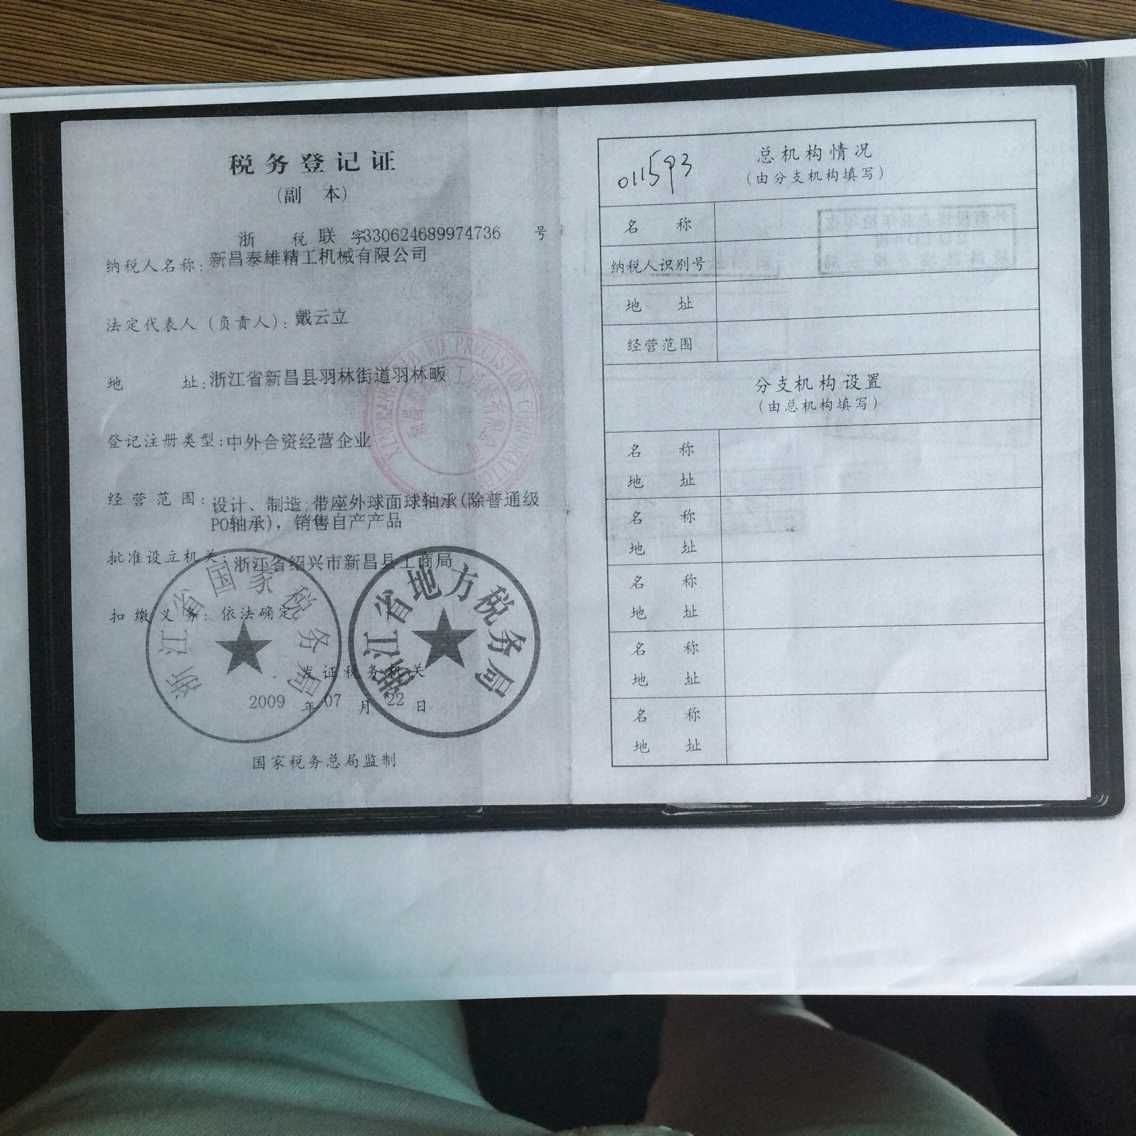 税务登记证
(副 本)
浙 税 联 字330624689974736 号
纳税人名称: 新昌泰雄精工机械有限公司
法定代表人 (负责人): 戴云立
地 址: 浙江省新昌县羽林街道羽林畈
登记注册类型: 中外合资经营企业
经 营 范 围: 设计、制造:带座外球面球轴承(除普通级
PO轴承), 销售自产产品
批准设立机关: 浙江省绍兴市新昌县工商局
扣 缴 义 务: 依法确定
浙江省国家税务局
浙江省地方税务局
发证税务机关
2009 年 07 月 22 日
国家税务总局监制
011593
总机构情况
(由分支机构填写)
名 称
纳税人识别号
地 址
经营范围
分支机构设置
(由总机构填写)
名 称
地 址
名 称
地 址
名 称
地 址
名 称
地 址
名 称
地 址